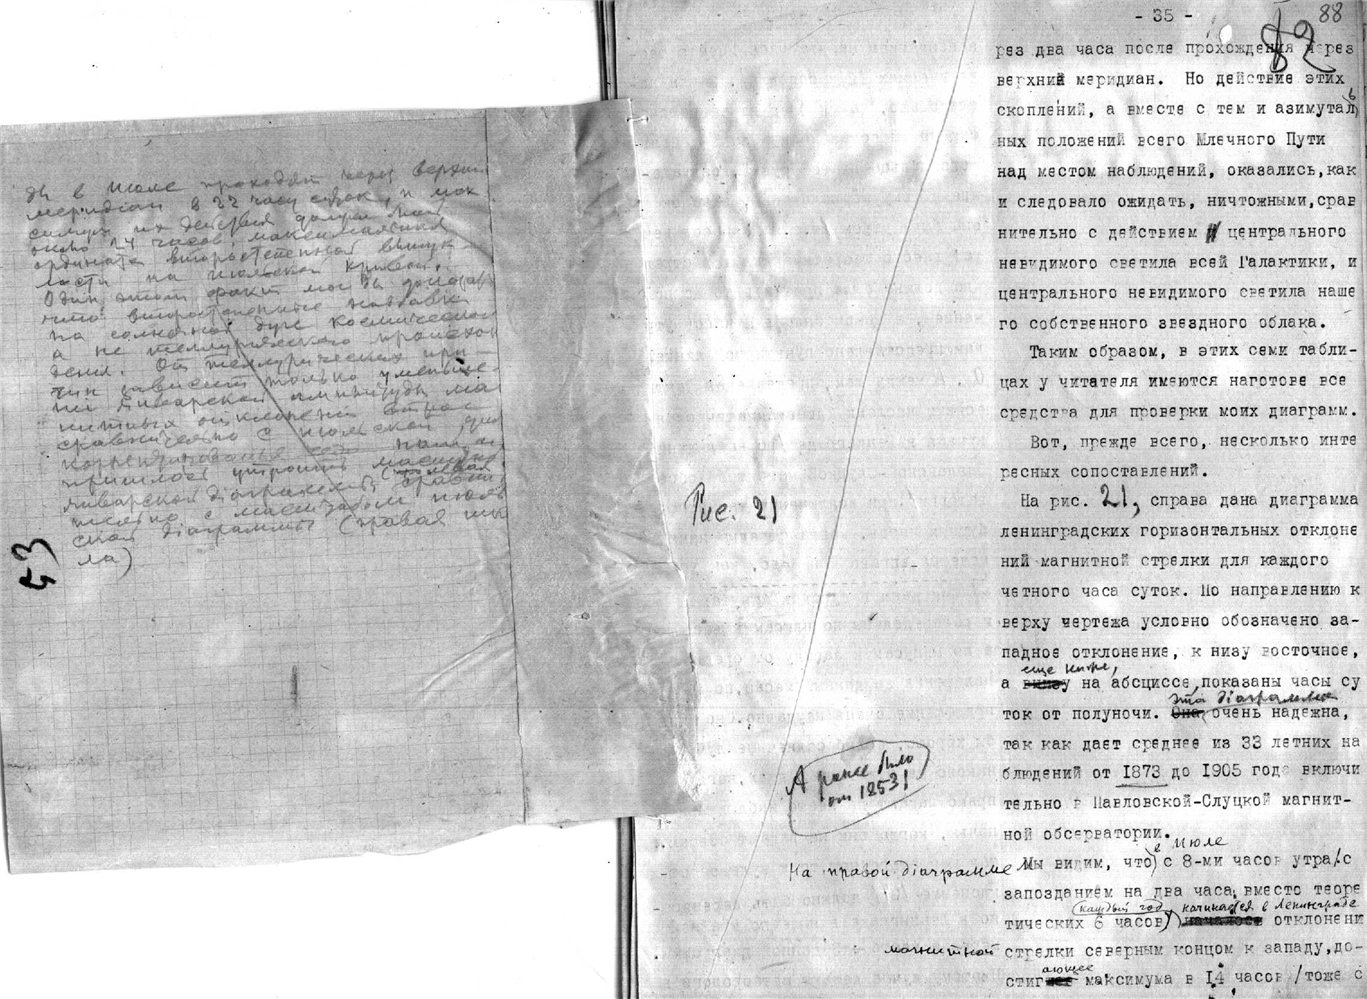 ды в июле проходят через верхн
меридиан в 22 часу суток, и мак
симум их действия должен быть
около 24 часов, максимальная
ордината второстепенной выпук-
лости на июльской кривой.
Один этот факт мог бы доказать
что второстепенные надбавки
на солнечной дуге космического
а не теллурического происхож
дения. От теллурических при-
чин зависит только уменьше-
ние январской амплитуды маг
нитных отклонений
сравнительно с июльской, для
корректирования
пришлось устроить масштаб
январской діаграммы (левая
тельно с масштабом июль
ской діаграммы (правая шка
ла)
53
Рис. 21
А ранее было
от 1853!
- 35 -
88
82
рез два часа после прохождения через
верхний меридиан. Но действие этих
скоплений, а вместе с тем и азимуталь
ных положений всего Млечного Пути
над местом наблюдений, оказались,как
и следовало ожидать, ничтожными,срав
нительно с действием центрального
невидимого светила всей Галактики, и
центрального невидимого светила наше
го собственного звездного облака.
Таким образом, в этих семи табли-
цах у читателя имеются наготове все
средства для проверки моих диаграмм.
Вот, прежде всего, несколько инте
ресных сопоставлений.
На рис. 21, справа дана диаграмма
ленинградских горизонтальных отклоне
ний магнитной стрелки для каждого
четного часа суток. По направлению к
верху чертежа условно обозначено за-
падное отклонение, к низу восточное,
еще ниже,
а внизу на абсциссе,показаны часы су
эта діаграмма
ток от полуночи. Она очень надежна,
так как дает среднее из 33 летних на
блюдений от 1873 до 1905 года включи
тельно в Павловской-Слуцкой магнит-
ной обсерватории.
в июле
На правой діаграмме Мы видим, что с 8-ми часов утра/с
запозданием на два часа, вместо теоре
каждый год, начинается в Ленинграде
тических 6 часов/ началось отклонени
магнитной стрелки северным концом к западу,до-
ающее
стиг максимума в 14 часов /тоже с